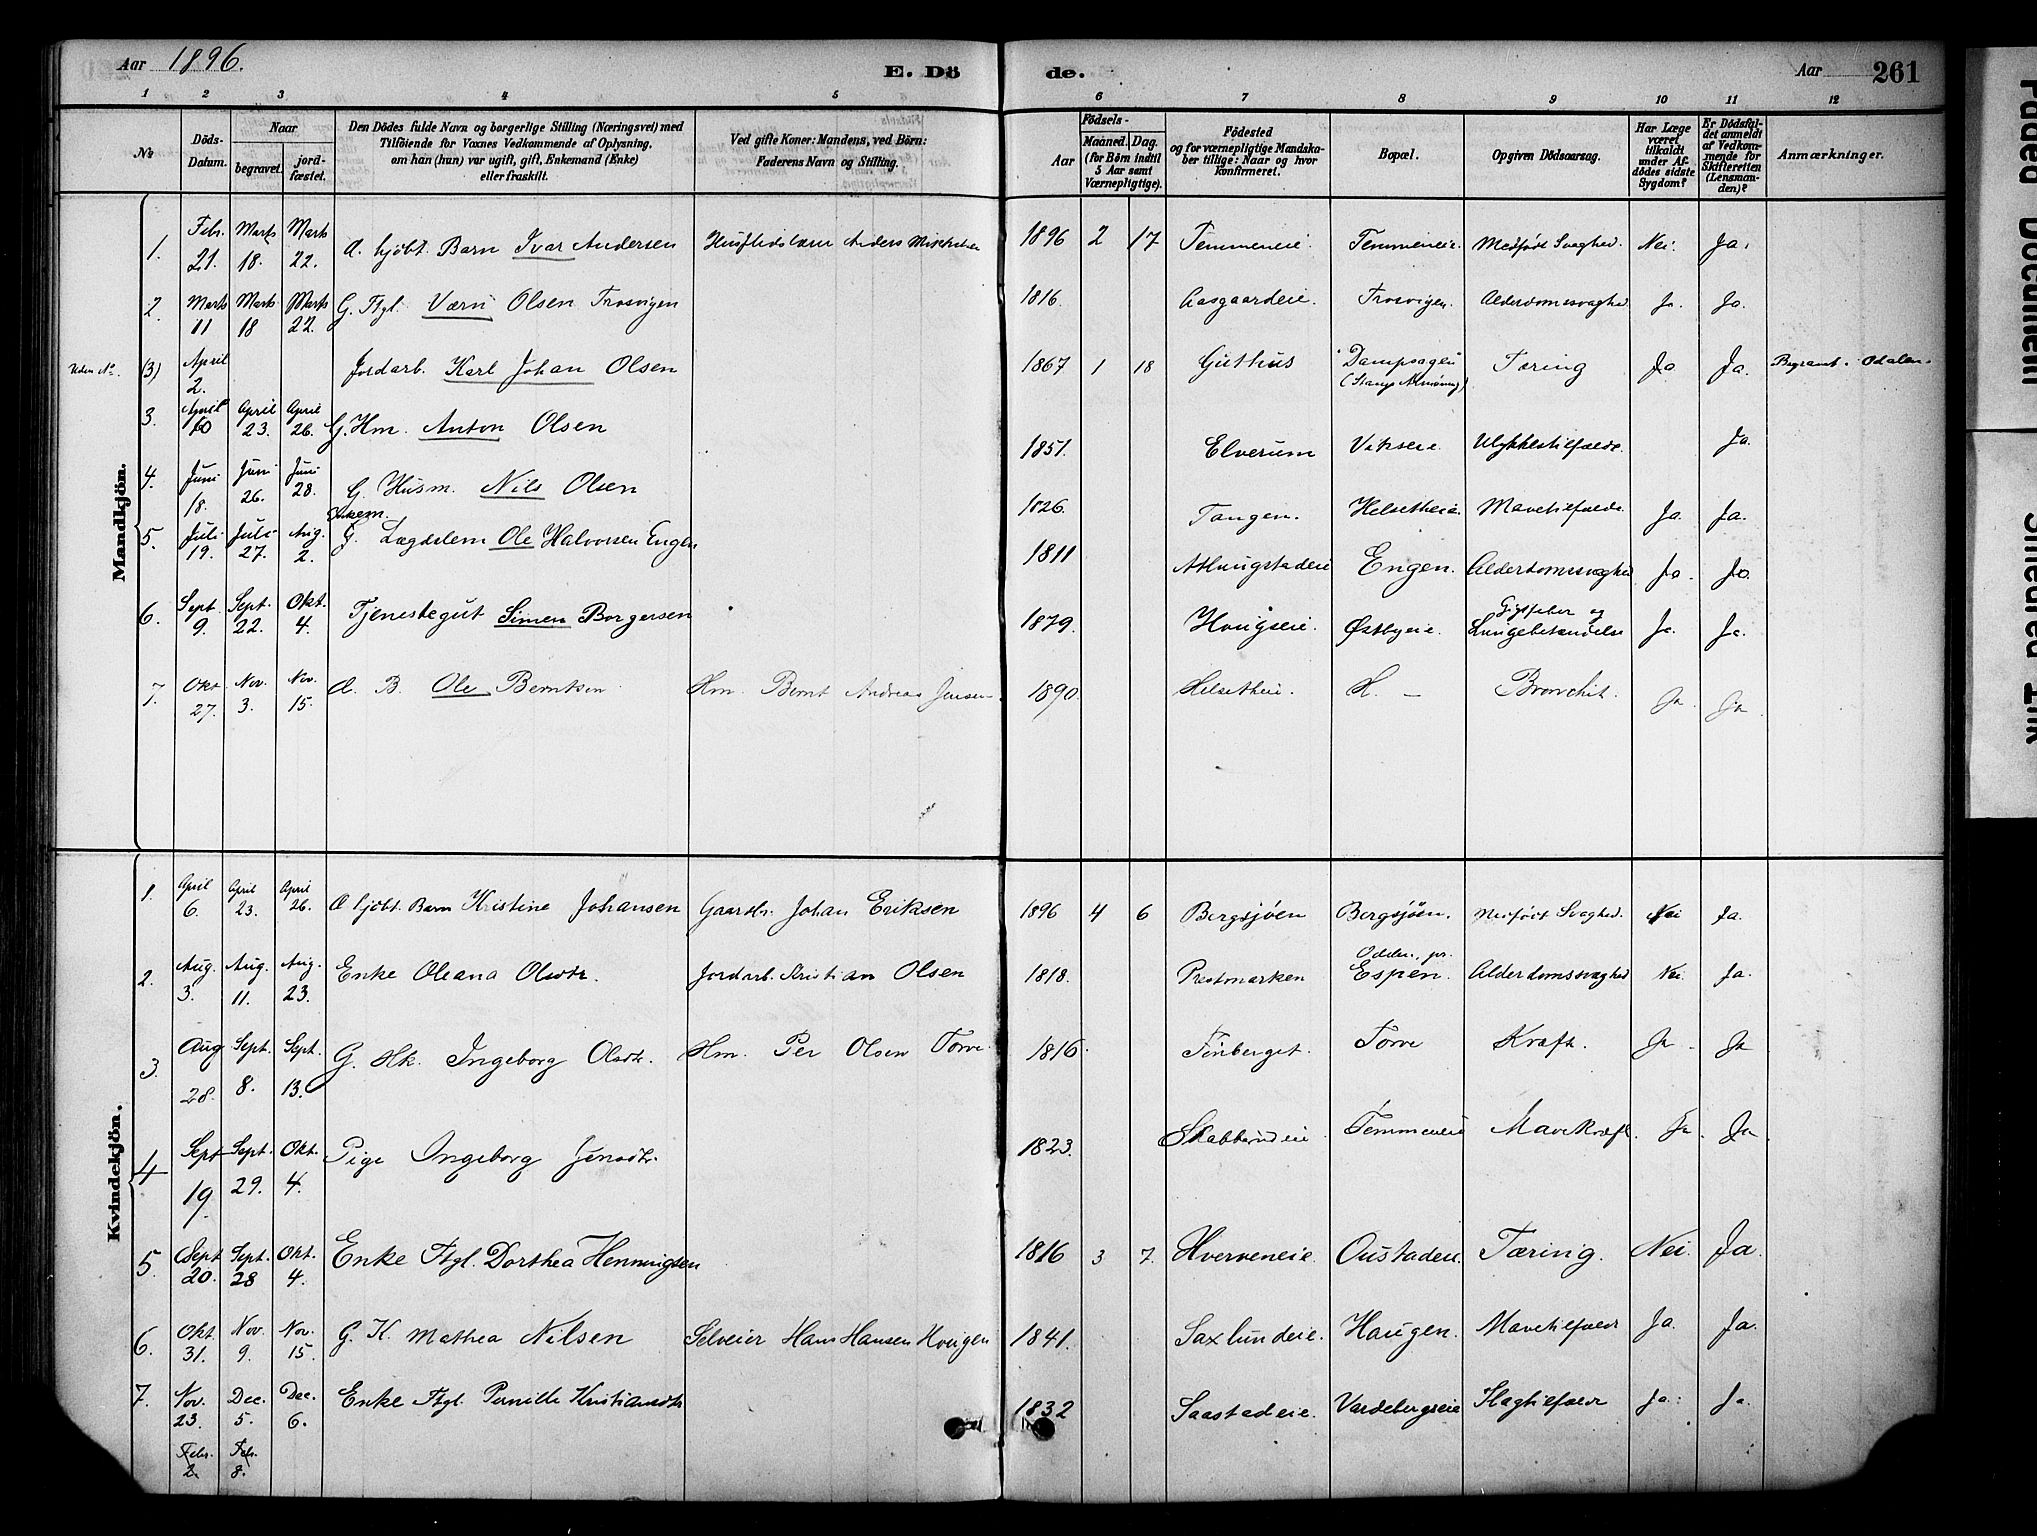 Aar 1896.
E. Dö
de.
Aar
261
1 2 3 4 5 6 7 8 9 10 11 12
No
Döds-Datum.
Naar
begravet.
jordfæstet.
Den Dödes fulde Navn og borgerlige Stilling (Næringsvei) med Tilföiende for Voxnes Vedkommende af Oplysning, om han (hun) var ugift, gift, Enkemand (Enke) eller fraskilt.
Ved gifte Koner: Mandens, ved Börn: Faderens Navn og Stilling.
Födsels-
Aar
Maaned. Dag.
(for Börn indtil 5 Aar samt Værnepligtige).
Födested og for værnepligtige Mandskaber tillige: Naar og hvor konfirmeret.
Bopæl.
Opgiven Dödsaarsag.
Har Læge været tilkaldt under Afdödes sidste Sygdom?
Er Dödsfaldet anmeldt af Vedkommende for Skifteretten (Lensmanden)?
Anmærkninger.
Mandkjön.
1. Febr. 21. Marts 18. Marts 22. Æ. hjdbt. Barn Ivar Andersen Husflidslærer Anders 1896 2 17 Temmeneie. Temmeneie. Medfødt Svaghed. Nei. Ja.
2. Marts 11 Marts 18 Marts 22. G. Ftgl. Værn Olsen Trosvigen 1816. Aasgaardeie. Trosvigen. Alderdomssvaghed Ja. Ja.
Uden No. (3) April 2. Jordarb. Karl Johan Olsen 1867 1 18 Guthus Dampsagen (Stange Almening) Tæring Ja Ja. Begravet i Odalen.
3. April 10 April 23. April 26. G. Hm. Anton Olsen 1851. Elverum Vikseie Ulykkestilfælde. Ja.
4. Juni 18. Juni 26. Juni 28. G. Husm. Nils Olsen 1826. Tangen. Helsetheie Mavetilfælde Ja. Ja.
5. Juli 19. Juli 27. Aug. 2. Enkem. G. Lægdslem Ole Halvorsen Engen 1811 Athungstadeie Engen. Alderdomssvaghed Ja. Ja.
6. Sept. 9. Sept. 22. Okt. 4. Tjenestegut Simen Borgersen 1879. Hougseie. Østbyeie. Gigtfeber og Lungebetændelse Ja. Ja.
7. Okt. 27. Nov. 3. Nov. 15. Æ. B. Ole Berntsen Hm. Bernt Andreas Jensen 1890. Helsetheie. H. — Bronchit. Ja. Ja
Kvindekjön.
1. April 6. April 23. April 26. Æ hjdbt. Barn Kristine Johansen Gaardbr. Johan Eriksen 1896 4 6 Bergsjøen Bergsjøen. Medfødt Svaghed. Nei Ja.
2. Aug. 3. Aug. 11. Aug. 23. Enke Oleana Olsdtr. Jordarb. Kristian Olsen 1818. Prestmarken Odalen, pr. Espen. Alderdomssvaghed Nei. Ja.
3 Aug 28. Sept. 8. Sept. 13. G. Hk. Ingeborg Olsdtr. Hm. Per Olsen Torve 1816. Finberget. Torve Kræft. Ja. Ja
4 Sept 19. Sept. 29. Okt. 4. Pige Ingeborg Jensdtr. 1823. Skabberudeie. Temmeneie Mavekræft. Ja. Ja.
5. Sept 20. Sept. 28 Okt. 4. Enke Ftgl. Dorthea Henningsen 1816 3 7. Hverveneie. Oustadeie. Tæring. Nei. Ja.
6. Okt. 31. Nov. 9. Nov. 15. G. K. Mathea Nilsen Selveier Hans Hansen Hougen 1841. Saxlundeie. Haugen. Mavetilfælde Ja. Ja.
7. Nov. 23. Dec. 5. Dec. 6. Enke Ftgl. Pernille Kristiansdtr 1832 Saastadeie. Vardebergseie Slagtilfælde Ja. Ja.
Febr. 2. Feb. 8.
Faded Document
Smeared Ink